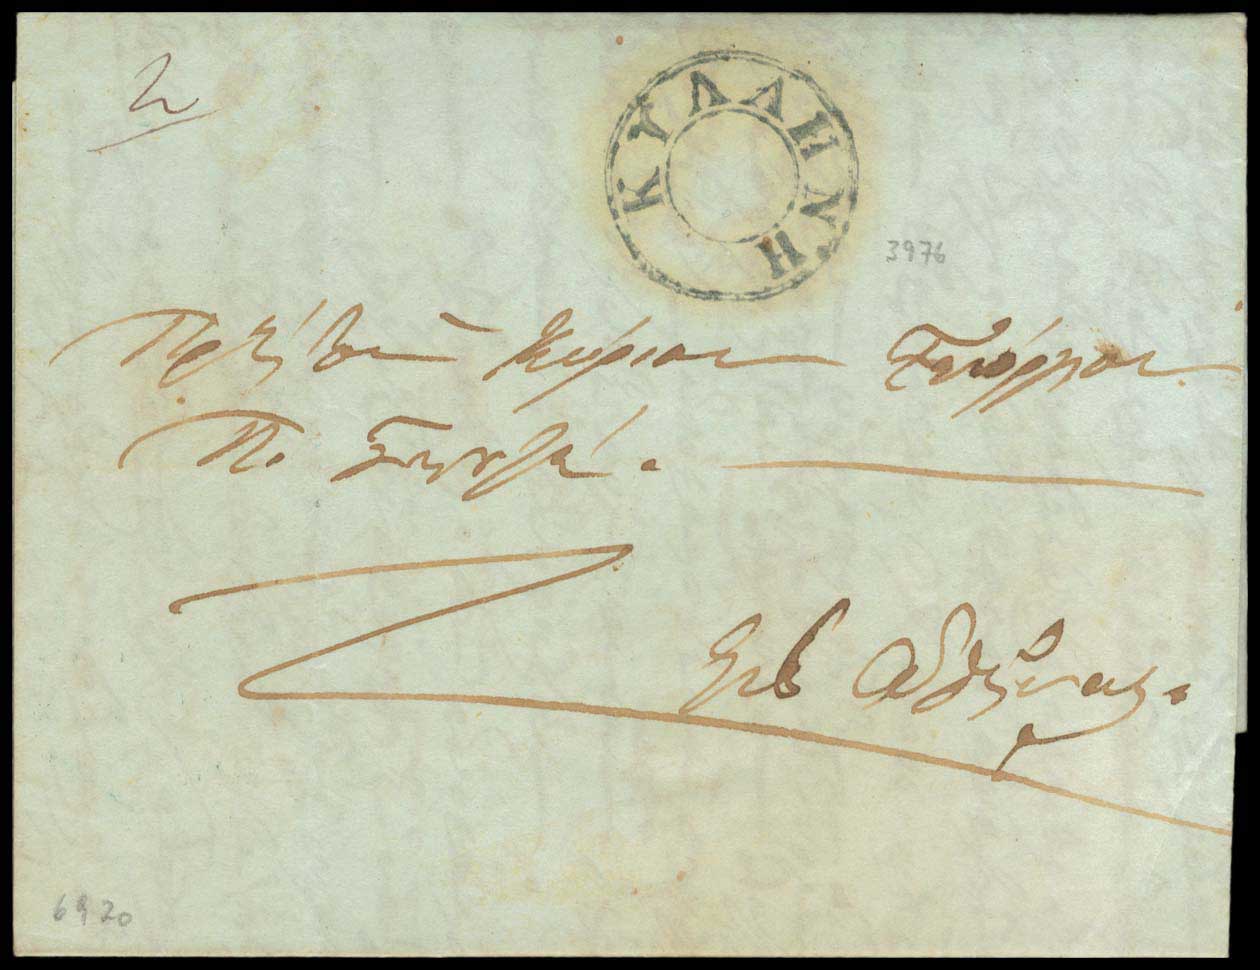 2
ΚΥΛΛΗΝΗ
3976
Πρὸς τὸν Κύριον Γεώργιον
Π.
Εἰς Ἀθήνας.
6920